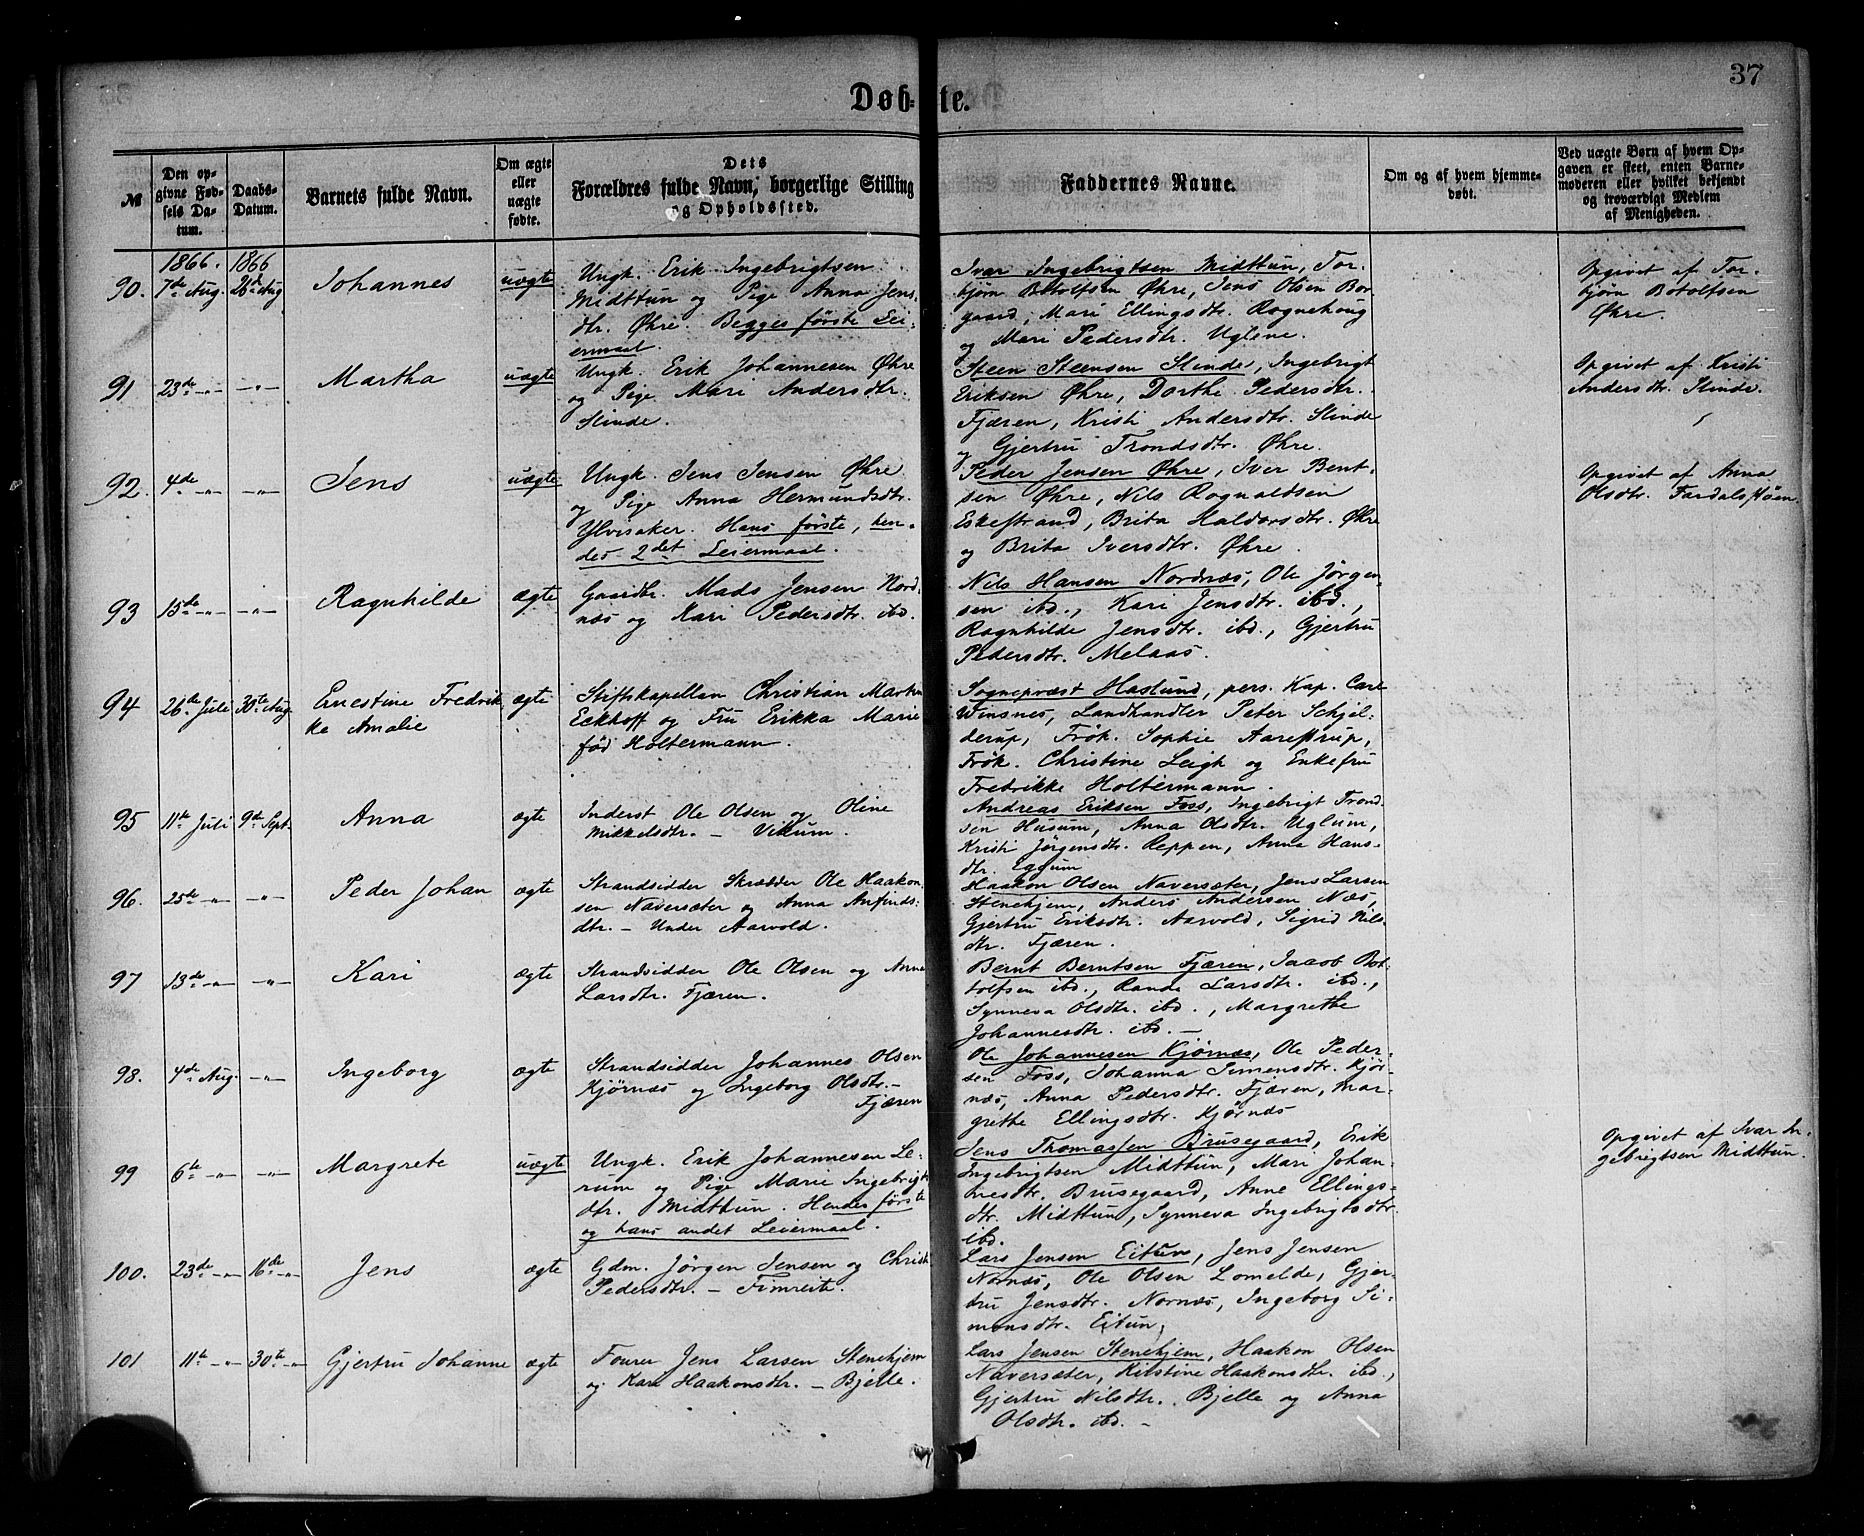 37
Døbte.
№
Den opgivne Fødsels Datum.
Daabs-Datum.
Barnets fulde Navn.
Om ægte eller uægte fødte.
Dets Forældres fulde Navn, borgerlige Stilling og Opholdssted.
Faddernes Navne.
Om og af hvem hjemmedøbt.
Ved uægte Børn af hvem Opgaven er skeet, enten Barnemoderen eller hvilket bekjendt og troværdigt Medlem af Menigheden.
1866. 1866
90. 7de Aug. 26de Aug Johannes uægte
Ungk. Erik Ingebrigtsen
Midttun og Pige Anna Jens-
dtr. Øhre. Begges første Lei-
ermaal.
Ivar Ingebrigtsen Midttun, Tor-
bjørn Botolfsen Øhre, Jens Olsen Bor-
gaard, Mari Ellingsdtr. Rognehoug
og Mari Pedersdtr. Uglene.
Opgivet af Tor-
bjørn Botolfsen
Øhre.
91 23de -"- -"- Martha uægte
Ungk. Erik Johannesen Øhre
og Pige Mari Andersdtr.
Slinde.
Steen Steensen Slinde, Ingebrigt
Eriksen Øhre, Dorthe Pedersdtr.
Fjæren, Kristi Andersdtr. Slinde
og Gjertru Trondsdtr. Øhre.
Opgivet af Kristi
Andersdtr. Slinde.
92. 4de -"- -"- Jens uægte
Ungk. Jens Jensen Øhre
og Pige Anna Hermundsdtr.
Ylvisaker. Hans første, hen-
des 2det Leiermaal.
Peder Jensen Øhre, Iver Bent-
sen Øhre, Nils Rognaldsen
Eskestrand, Brita Haldorsdtr. Øhre
og Brita Iversdtr. Øhre.
Opgivet af Anna
Olsdtr. Fardalstøen.
93 15de -"- -"- Ragnhilde ægte
Gaardbr. Mads Jensen Nord-
næs og Kari Pedersdtr. ibd.
Nils Hansen Nordnæs, Ole Jørgen-
sen ibd., Kari Jensdtr. ibd.,
Ragnhilde Jensdtr. ibd., Gjertru
Pedersdtr. Melaas.
94 26de Juli 30te Aug Ernestine Fredrik- ægte
ke Amalie
Stiftskapellan Christian Martin
Eckhoff og Fru Erikka Marie
fød Holtermann.
Sognepræst Haslund, pers. Kap. Carl
Winsnes, Landhandler Peter Schjel-
derup, Frøk. Sophie Aarestrup,
Frøk. Christine Leigh og Enkefru
Fredrikke Holtermann.
95 11te Juli 9de Sept. Anna ægte
Inderst Ole Olsen og Oline
Mikkelsdtr. – Vikum.
Andreas Eriksen Foss, Ingebrigt Trond-
sen Husum, Anna Olsdtr. Uglum,
Kristi Jørgensdtr. Reppen, Anna Hans-
dtr. Eggum
96. 25de -"- -"- Peder Johan ægte
Strandsidder Skrædder Ole Haakon-
sen Naversæter og Anna Anfinds-
dtr. – Under Aarvold.
Haakon Olsen Naversæter, Jens Larsen
Stenehjem, Anders Andersen Næs,
Gjertru Eriksdtr. Aarvold, Sigrid Nils-
dtr. Fjæren.
97 13de -"- -"- Kari ægte
Strandsidder Ole Olsen og Anna
Larsdtr. Fjæren.
Bernt Berntsen Fjæren, Jacob Bot-
tolfsen ibd., Randi Larsdtr. ibd.,
Synneva Olsdtr. ibd., Margrethe
Johannesdtr. ibd. –
98. 4de Aug. -"- Ingeborg ægte
Strandsidder Johannes Olsen
Kjørnæs og Ingeborg Olsdtr. –
Fjæren
Ole Johannesen Kjørnæs, Ole Peder-
sen Foss, Johanna Simensdtr. Kjør-
næs, Anna Pedersdtr. Fjæren, Mar-
grethe Ellingsdtr. Kjørnæs
99 6te -"- -"- Margrete uægte
Ungk. Erik Johannesen Le-
rum og Pige Marie Ingebrigts-
dtr. Midttun. Hendes første
og hans andet Leiermaal.
Jens Thomassen Brusegaard, Erik
Ingebrigtsen Midttun, Mari Johan-
nesdtr. Brusegaard, Anne Ellings-
dtr. Midttun, Synneva Ingebrigtsdtr.
ibd.
Opgivet af Ivar In-
gebrigtsen Midttun.
100. 23de -"- 16de -"- Jens ægte
Gdm. Jørgen Jensen og Christi
Pedersdtr. – Fimreite.
Lars Jensen Eitun, Jens Jensen
Nornæs, Ole Olsen Lomelde, Gjer-
tru Jensdtr. Nornæs, Ingeborg Si-
monsdtr. Eitun,
101 11te -"- 30te -"- Gjertru Johanne ægte
Fourer Jens Larsen Stenehjem
og Kari Haakonsdtr. – Bjelle.
Lars Jensen Stenehjem, Haakon Olsen
Naversæter, Kirstine Haakonsdtr. ibd.,
Gjertru Nilsdtr. Bjelle og Anna
Olsdtr. ibd. –